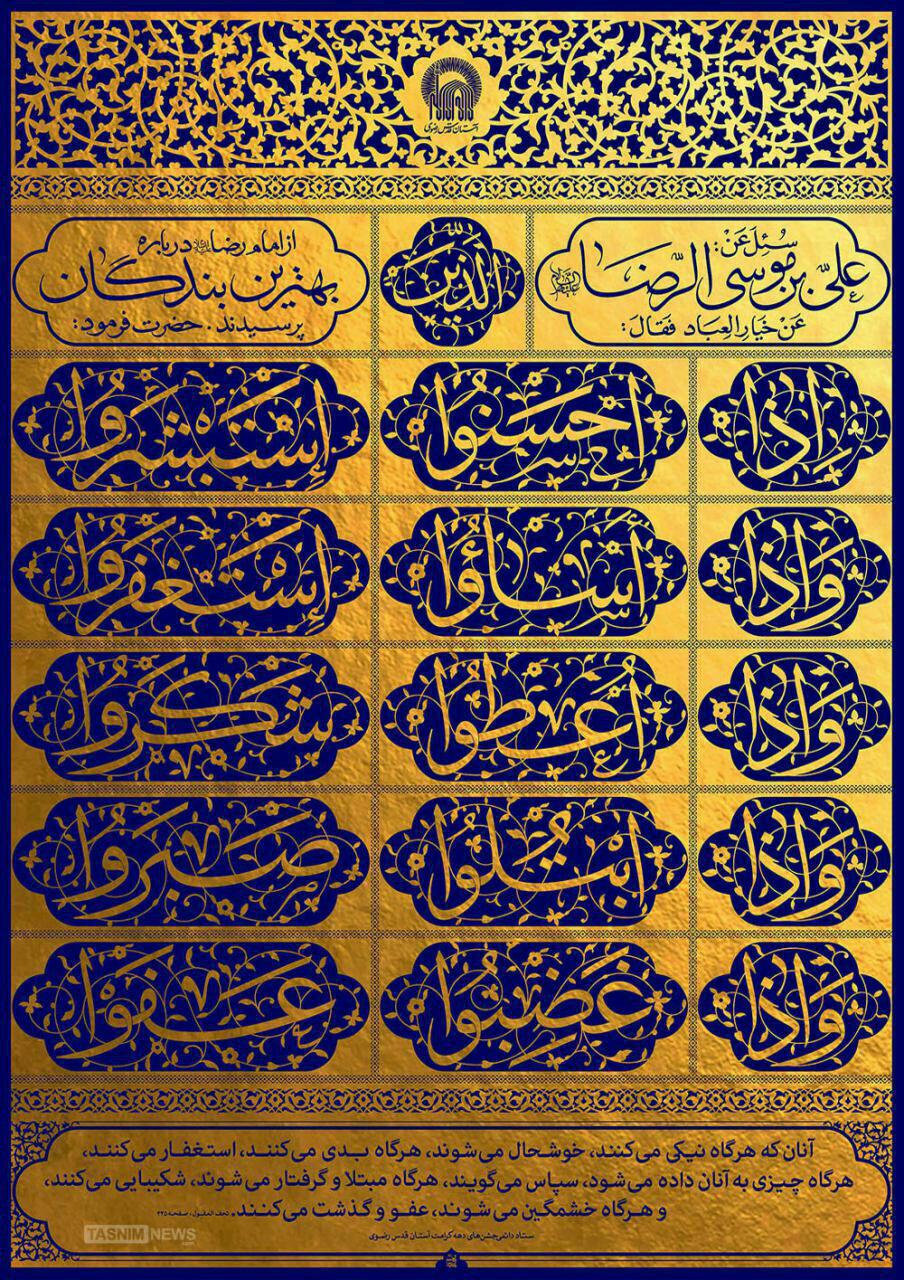 آستان قدس رضوی
سُئِلَ عَنْ:
عَلیِّ بنِ مُوسَی الرِّضَا
عَنْ خِیَارِ العِبَادِ فَقَالَ:
الَّذِینَ
از امام رضا درباره
بهترین بندگان
پرسیدند. حضرت فرمود:
إِذَا أَحْسَنُوا إِسْتَبْشَرُوا
وَ إِذَا أَسَاؤُا إِسْتَغْفَرُوا
وَ إِذَا أُعْطُوا شَكَرُوا
وَ إِذَا ابْتُلُوا صَبَرُوا
وَ إِذَا غَضِبُوا عَفَوْا
آنان که هرگاه نیکی می‌کنند، خوشحال می‌شوند، هرگاه بدی می‌کنند، استغفار می‌کنند،
هرگاه چیزی به آنان داده می‌شود، سپاس می‌گویند، هرگاه مبتلا و گرفتار می‌شوند، شکیبایی می‌کنند،
و هرگاه خشمگین می‌شوند، عفو و گذشت می‌کنند. تحف العقول، صفحه ۴۴۵
ستاد دائمی جشن‌های دهه کرامت آستان قدس رضوی
TASNIM NEWS